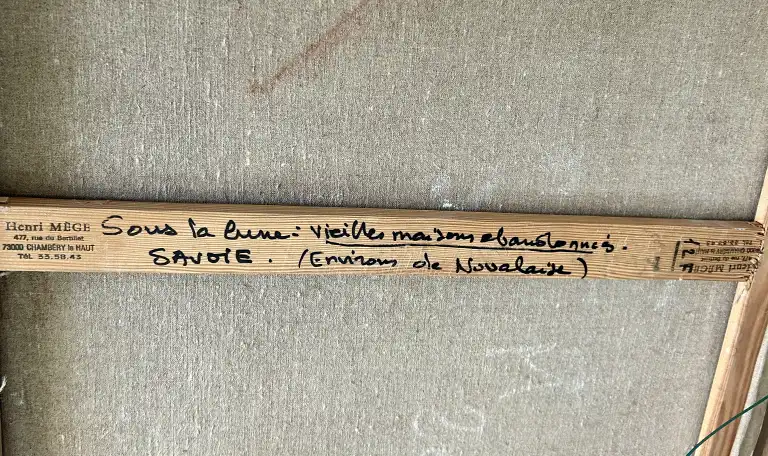 Henri MÈGE
477, rue du Bertillet
73000 CHAMBÉRY le HAUT
Tél. 33.58.43
Sous la lune : vieilles maisons abandonnées.
SAVOIE. (Environs de Novalaise)
Henri MÈGE